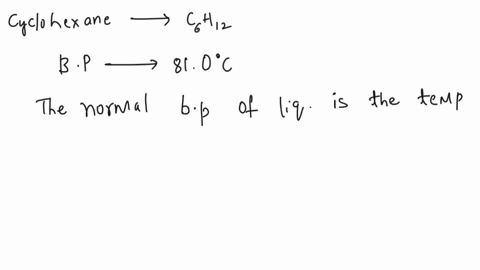 Cyclohexane ⟶ C₆H₁₂
B.P ⟶ 81.0°C
The normal b.p of liq. is the temp